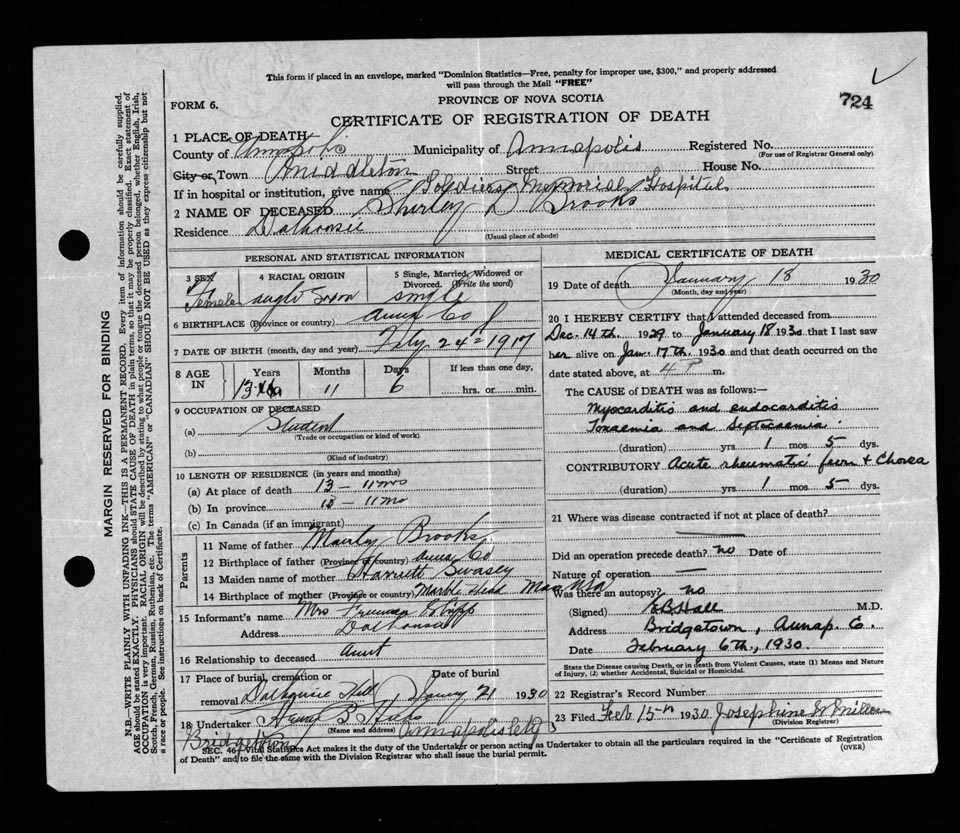 This form if placed in an envelope, marked "Dominion Statistics—Free, penalty for improper use, $300," and properly addressed
will pass through the Mail "FREE"
FORM 6.
PROVINCE OF NOVA SCOTIA
724
CERTIFICATE OF REGISTRATION OF DEATH
1 PLACE OF DEATH
County of Annapolis Municipality of Annapolis Registered No.
(For use of Registrar General only)
City or Town Middleton Street House No.
If in hospital or institution, give name Soldiers Memorial Hospital
2 NAME OF DECEASED Shirley D Brooks
Residence Dalhousie
(Usual place of abode)
PERSONAL AND STATISTICAL INFORMATION
3 SEX 4 RACIAL ORIGIN 5 Single, Married, Widowed or Divorced. (Write the word)
Female anglo Saxon single
6 BIRTHPLACE (Province or country) Anna Co
7 DATE OF BIRTH (month, day and year) 24 1917
8 AGE IN Years Months Days If less than one day,
13 11 6 hrs. or min.
9 OCCUPATION OF DECEASED
(a) Student
Trade or occupation or kind of work)
(b)
(Kind of industry)
10 LENGTH OF RESIDENCE (in years and months)
(a) At place of death 13 — 11 mos
(b) In province 13 — 11 mo
(c) In Canada (if an immigrant)
Parents
11 Name of father Brooks
12 Birthplace of father (Province or country) Anna Co
13 Maiden name of mother Harriett Swasey
14 Birthplace of mother (Province or country) Marble Head Mass USA
15 Informant's name Mrs Freeman
Address Dalhousie
16 Relationship to deceased Aunt
17 Place of burial, cremation or removal Dalhousie Hill Date of burial 21 1930
18 Undertaker Henry B Hicks
(Name and address)
Bridgetown Annapolis Co
MEDICAL CERTIFICATE OF DEATH
19 Date of death January 18 1930
(Month, day and year)
20 I HEREBY CERTIFY that I attended deceased from
Dec. 14th 1929 to January 18 1930 that I last saw
her alive on Jan. 17th 1930 and that death occurred on
date stated above, at 4 P m.
The CAUSE OF DEATH was as follows:—
Myocarditis and endocarditis
Toxaemia and Septicaemia.
(duration) yrs 1 mos 5 dys.
CONTRIBUTORY Acute rheumatic fever & Chorea
(duration) yrs 1 mos 5 dys.
21 Where was disease contracted if not at place of death?
Did an operation precede death? no Date of
Nature of operation —
Was there an autopsy? no
(Signed) E B Hall M.D.
Address Bridgetown, Annap. Co.
Date February 6th., 1930
State the Disease causing Death, or in death from Violent Causes, state (1) Means and Nature
of Injury, (2) whether Accidental, Suicidal or Homicidal.
22 Registrar's Record Number
23 Filed Feb 15th 1930 Josephine W Miller
(Division Registrar)
SEC. 46, Vital Statistics Act makes it the duty of the Undertaker or person acting as Undertaker to obtain all the particulars required in the "Certificate of Registration
of Death" and to file the same with the Division Registrar who shall issue the burial permit.
(OVER)
MARGIN RESERVED FOR BINDING
N.B.—WRITE PLAINLY WITH UNFADING INK—THIS IS A PERMANENT RECORD. Every item of information should be carefully supplied.
AGE should be stated EXACTLY. PHYSICIANS should STATE CAUSE OF DEATH in plain terms, so that it may be properly classified. Exact statement of
OCCUPATION is very important. RACIAL ORIGIN will be described by stating to what people or tongue the deceased person belonged, whether English, Irish,
Scotch, French, German, Russian, Ruthenian, etc. The terms "AMERICAN" or "CANADIAN" SHOULD NOT BE USED as they express citizenship but not
a race or people. See instructions on back of Certificate.